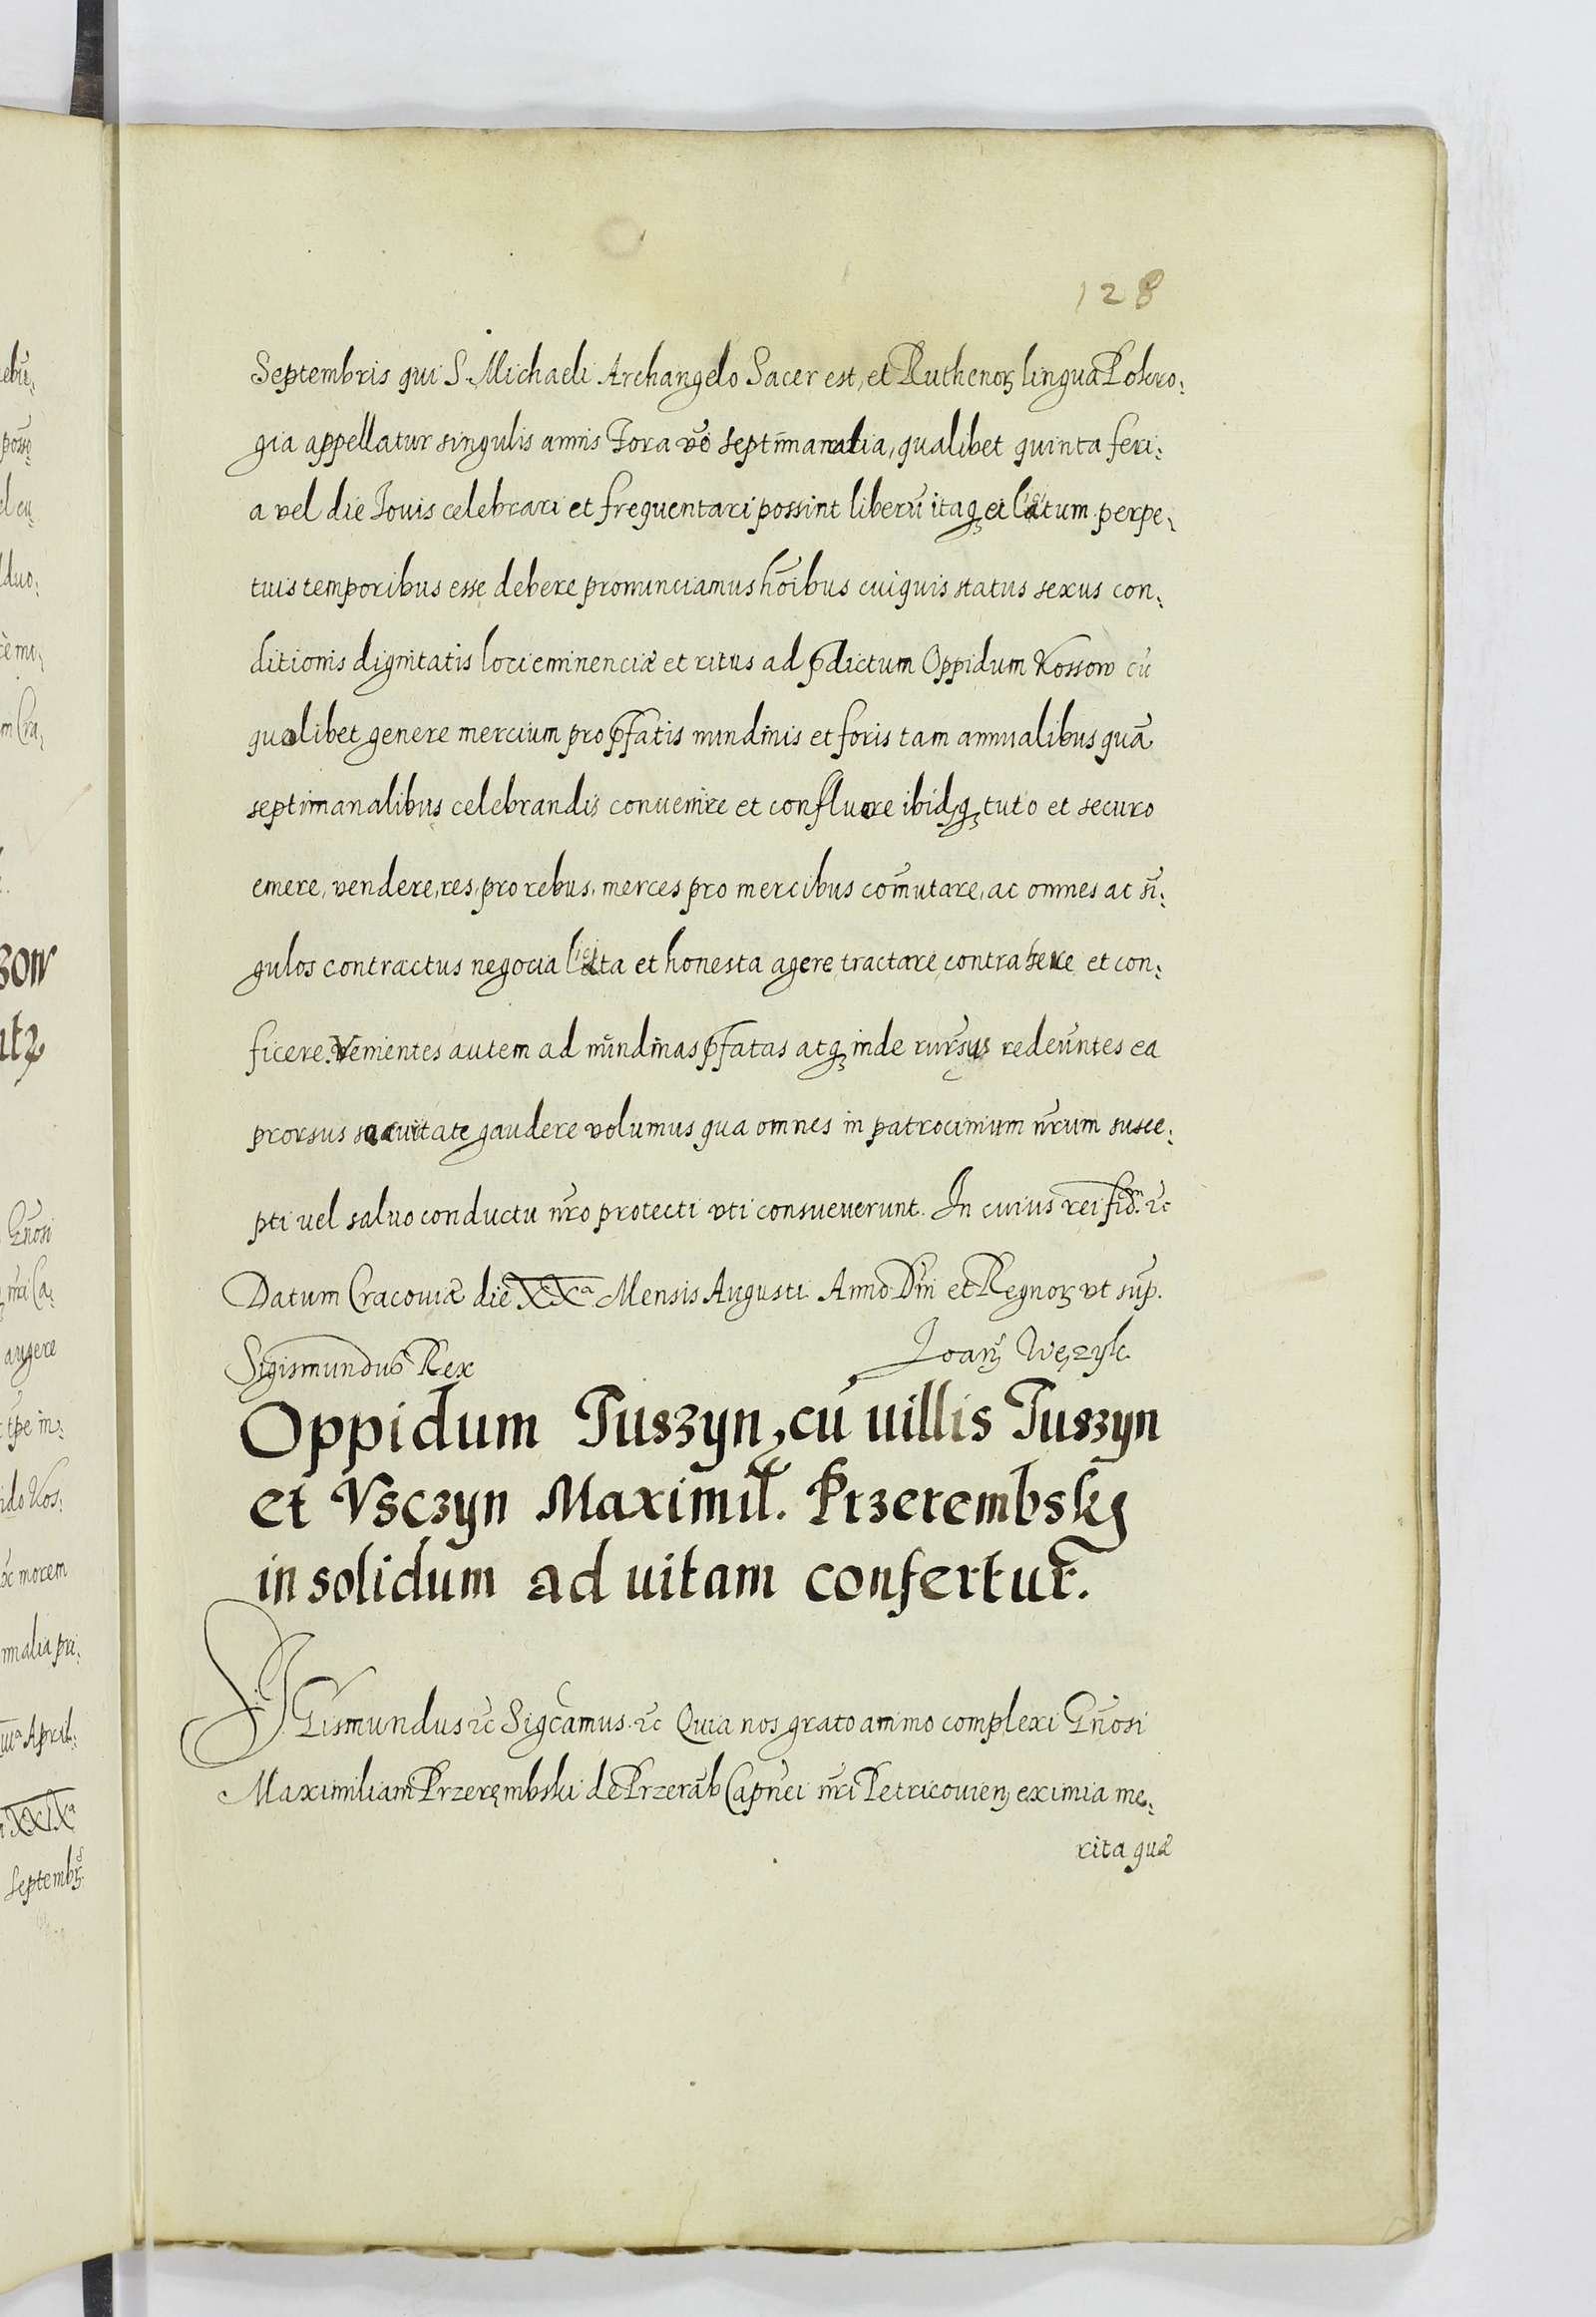 128
Septembris qui S. Michaeli Archangelo Sacer est, et Ruthenoꝝ lingua Pokro:
gia appellatur singulis annis Fora vo septimanalia, qualibet quinta feri:
a vel die Iouis celebrari et frequentari possint liberū itaqꝫ et licitum perpe:
tuis temporibus esse debere pronunciamus hōibus cuiquis status sexus con:
ditionis dignitatis loci eminenciæ et ritus ad p̄dictum Oppidum Kossow cū
qualibet genere mercium pro p̄fatis nundinis et foris tam annualibus quā
septimanalibus celebrandis conuenire et confluere ibidqꝫ tuto et securo
emere, vendere, res, pro rebus, merces pro mercibus com̄utare, ac omnes ac sī:
gulos contractus negocia licita et honesta agere tractare contrahere et con:
ficere. Venientes autem ad nundinas p̄fatas atqꝫ inde rursus redeuntes ea
prorsus securitate gaudere volumus qua omnes in patrocinium nr̄um susce:
pti vel saluo conductu nr̄o protecti vti consueuerunt. In cuius rei fid. ꝛc
Datum Cracouiæ die XXa Mensis Augusti Anno Dni et Regnoꝝ vt sup.
Sigismundus Rex
Joan̄ Wężyk.
Oppidum Tuszyn, cū uillis Tuszyn
et Vsczyn Maximil. Przerembsky
in solidum ad uitam confertur.
SIGismundus ꝛc Sigcamus ꝛc Quia nos grato animo complexi Gn̄osi
Maximiliani Przerembski de Przerāb Capnei nr̄i Petricouien̄ eximia me:
rita quæ
ebū:
posse
el cu
duo:
m Cra:
zow
Gn̄osi
nr̄i Ca:
augere
tp̄e in:
ido Kos:
morem
nnalia pri:
uia April:
XXIXa
Septembr̄